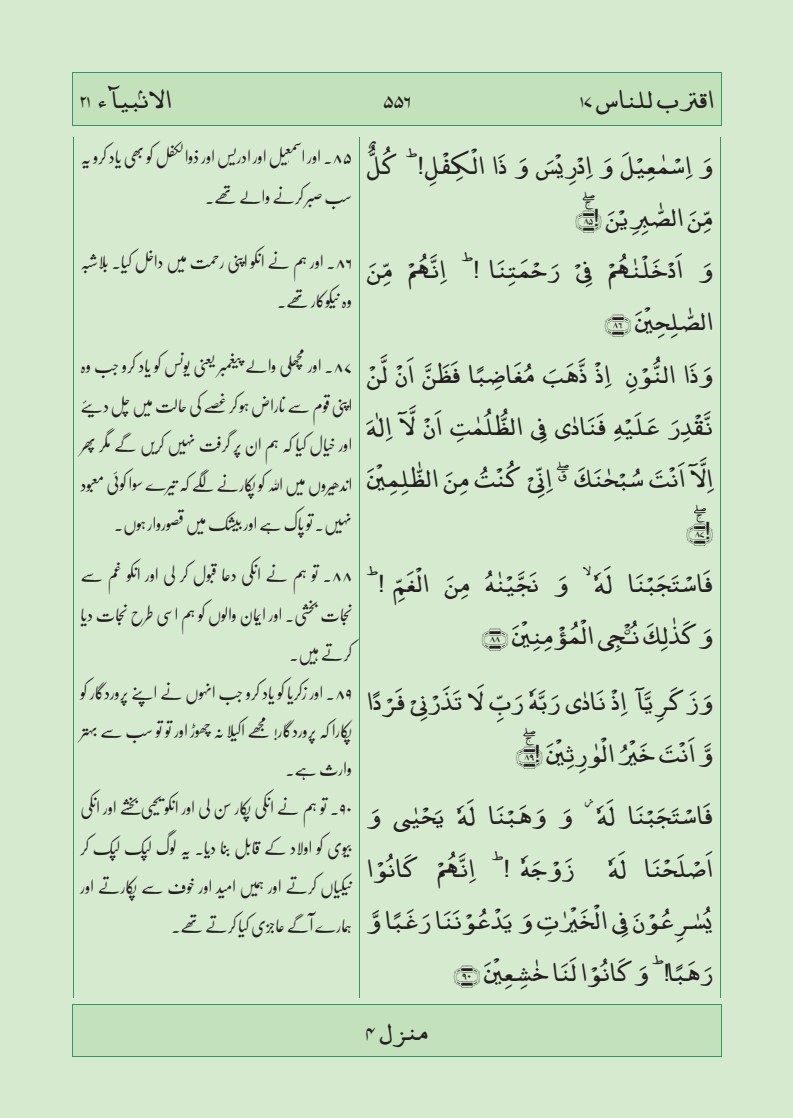 اقترب للناس ۱۷
۵۵۶
الانبیآء ۲۱
وَ اِسْمٰعِیْلَ وَ اِدْرِیْسَ وَ ذَا الْكِفْلِ! ؕ كُلٌّ
مِّنَ الصّٰبِرِیْنَ ۚۖ! ۸۵
وَ اَدْخَلْنٰهُمْ فِیْ رَحْمَتِنَا ! ؕ اِنَّهُمْ مِّنَ
الصّٰلِحِیْنَ ۸۶
وَ ذَا النُّوْنِ اِذْ ذَّهَبَ مُغَاضِبًا فَظَنَّ اَنْ لَّنْ
نَّقْدِرَ عَلَیْهِ فَنَادٰی فِی الظُّلُمٰتِ اَنْ لَّاۤ اِلٰهَ
اِلَّاۤ اَنْتَ سُبْحٰنَكَ ۖۗ اِنِّیْ كُنْتُ مِنَ الظّٰلِمِیْنَ
ۚۖ! ۸۷
فَاسْتَجَبْنَا لَهٗ ۙ وَ نَجَّیْنٰهُ مِنَ الْغَمِّ ! ؕ
وَ كَذٰلِكَ نُـْۨجِی الْمُؤْمِنِیْنَ ۸۸
وَ زَكَرِیَّاۤ اِذْ نَادٰی رَبَّهٗ رَبِّ لَا تَذَرْنِیْ فَرْدًا
وَّ اَنْتَ خَیْرُ الْوٰرِثِیْنَ ۚۖ! ۸۹
فَاسْتَجَبْنَا لَهٗ ؗ وَ وَهَبْنَا لَهٗ یَحْیٰی وَ
اَصْلَحْنَا لَهٗ زَوْجَهٗ ! ؕ اِنَّهُمْ كَانُوْا
یُسٰرِعُوْنَ فِی الْخَیْرٰتِ وَ یَدْعُوْنَنَا رَغَبًا وَّ
رَهَبًا! ؕ وَ كَانُوْا لَنَا خٰشِعِیْنَ ۹۰
۸۵۔ اور اسمٰعیل اور ادریس اور ذوالکفل کو بھی یاد کرو یہ
سب صبر کرنے والے تھے۔
۸۶۔ اور ہم نے انکو اپنی رحمت میں داخل کیا۔ بلاشبہ
وہ نیکوکار تھے۔
۸۷۔ اور مچھلی والے پیغمبر یعنی یونس کو یاد کرو جب وہ
اپنی قوم سے ناراض ہو کر غصے کی حالت میں چل دیئے
اور خیال کیا کہ ہم ان پر گرفت نہیں کریں گے مگر پھر
اندھیروں میں اللہ کو پکارنے لگے کہ تیرے سوا کوئی معبود
نہیں۔ تو پاک ہے اور بیشک میں قصوروار ہوں۔
۸۸۔ تو ہم نے انکی دعا قبول کر لی اور انکو غم سے
نجات بخشی۔ اور ایمان والوں کو ہم اسی طرح نجات دیا
کرتے ہیں۔
۸۹۔ اور زکریا کو یاد کرو جب انہوں نے اپنے پروردگار کو
پکارا کہ پروردگار! مجھے اکیلا نہ چھوڑ اور تو تو سب سے بہتر
وارث ہے۔
۹۰۔ تو ہم نے انکی پکار سن لی اور انکو یحییٰ بخشے اور انکی
بیوی کو اولاد کے قابل بنا دیا۔ یہ لوگ لپک لپک کر
نیکیاں کرتے اور ہمیں امید اور خوف سے پکارتے اور
ہمارے آگے عاجزی کیا کرتے تھے۔
منزل ۴